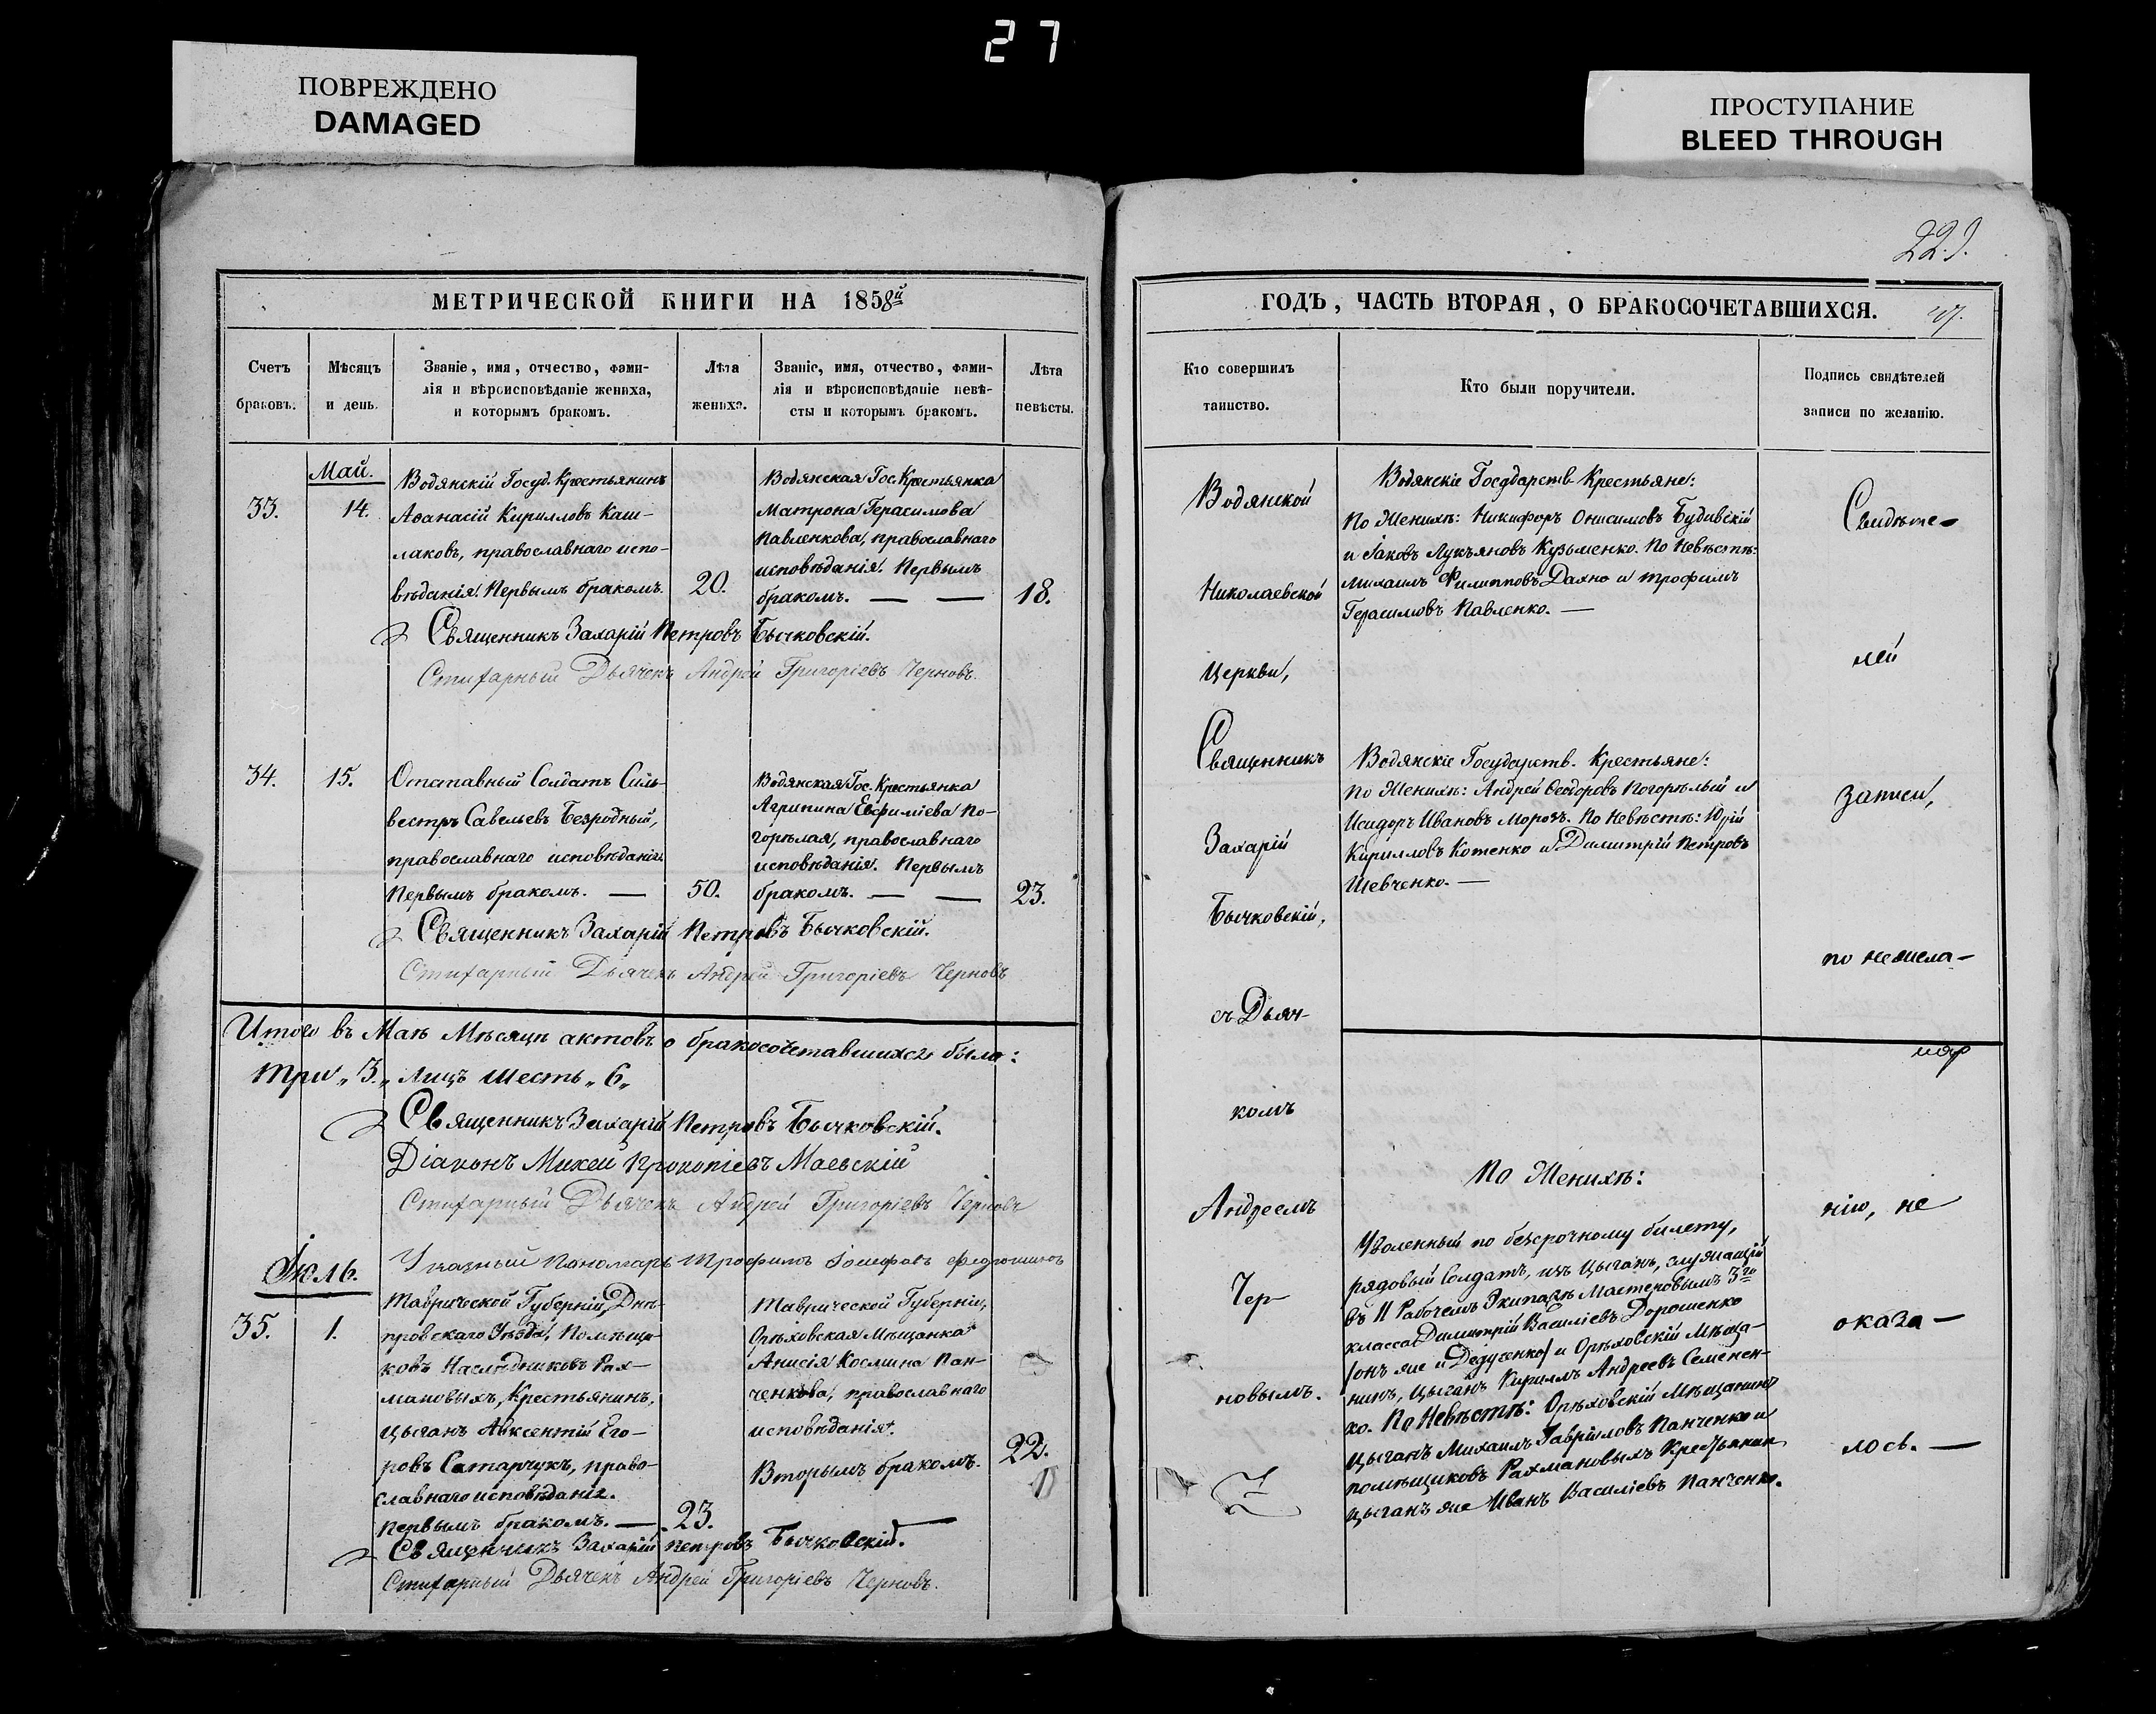 27
ПОВРЕЖДЕНО
DAMAGED
ПРОСТУПАНИЕ
BLEED THROUGH
МЕТРИЧЕСКОЙ КНИГИ НА 1858й
Счетъ браковъ.
Мѣсяцъ и день.
Званіе, имя, отчество, фами-
лія и вѣроисповѣданіе жениха,
и которымъ бракомъ.
Лѣта жениха.
Званіе, имя, отчество, фами-
лія и вѣроисповѣданіе невѣ-
сты и которымъ бракомъ.
Лѣта невѣсты.
Май.
33.
14.
Водянскій Госуд. Крестьянинъ
Аѳанасій Кирилловъ Каш-
лаковъ, православнаго испо-
вѣданія. Первымъ бракомъ.
20.
Водянская Гос. Крестьянка
Матрона Герасимова
Павленкова, православнаго
исповѣданія. Первымъ
бракомъ. — —
18.
Священникъ Захарій Петровъ Бычковскій.
Стихарный Дьячекъ Андрей Григоріевъ Черновъ.
34.
15.
Отставный Солдатъ Силь-
вестръ Савельевъ Безродный,
православнаго исповѣданія.
Первымъ бракомъ. —
50.
Водянская Гос. Крестьянка
Агрипина Евфиміева По-
горѣлая, православнаго
исповѣданія. Первымъ
бракомъ. — —
23.
Священникъ Захарій Петровъ Бычковскій.
Стихарный Дьячекъ Андрей Григоріевъ Черновъ
Итого въ Маѣ Мѣсяцѣ актовъ о бракосочетавшихся было:
три „3„ лицъ шесть „6„
Священникъ Захарій Петровъ Бычковскій.
Діаконъ Михей Прокопіевъ Маевскій
Стихарный Дьячекъ Андрей Григоріевъ Черновъ
Указный Пономарь Трофимъ Іосифовъ
Іюль.
35.
1.
Таврической Губерніи, Днѣ-
провскаго Уѣзда, Помѣщи-
ковъ Наслѣдниковъ Рах-
мановыхъ, Крестьянинъ,
цыганъ Авксентій Его-
ровъ Сатарчукъ, право-
славнаго исповѣданія.
первымъ бракомъ. —
23.
Таврической Губерніи,
Орѣховская Мѣщанка
Анисія Космина Пан-
ченкова, православнаго
исповѣданія.
Вторымъ бракомъ.
22.
Священникъ Захарій Петровъ Бычковскій.
Стихарный Дьячекъ Андрей Григоріевъ Черновъ.
ГОДЪ, ЧАСТЬ ВТОРАЯ, О БРАКОСОЧЕТАВШИХСЯ.
Кто совершилъ таинство.
Кто были поручители.
Подпись свидѣтелей
записи по желанію.
Водянской
Николаевской
Церкви,
Священникъ
Захарій
Бычковскій,
съ Дьяч-
комъ
Андреемъ
Чер-
новымъ.
Водянскіе Государств. Крестьяне:
По Женихѣ: Никифоръ Онисимовъ Будивскій
и Іаковъ Лукъяновъ Кузьменко. По Невѣстѣ:
Михаилъ Филипповъ Дахно и Трофимъ
Герасимовъ Павленко. —
Водянскіе Государств. Крестьяне:
По Женихѣ: Андрей Ѳеодоровъ Погорѣлый и
Исидоръ Ивановъ Морозъ. По Невѣстѣ: Юрій
Кирилловъ Котенко и Димитрій Петровъ
Шевченко. —
По Женихѣ:
Уволенный по безсрочному билету,
рядовый Солдатъ, изъ Цыганъ, служащій
въ 11 Рабочемъ Экипажѣ Мастеровымъ 3го
класса Димитрій Василіевъ Дорошенко
(онъ же и Дедученко) и Орѣховскій Мѣща-
нинъ, Цыганъ Кириллъ Андреевъ Семенен-
ко. По Невѣстѣ: Орѣховскій Мѣщанинъ
Цыганъ Михаилъ Гавріиловъ Панченко и
помѣщиковъ Рахмановыхъ Крестьянинъ
цыганъ же Иванъ Василіевъ Панченко.
Свидѣте-
лей
записи,
по нежела-
нію, не
оказа-
лось. —